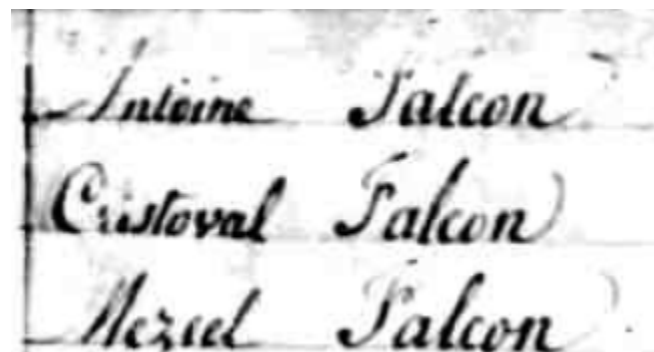 Antoine Falcon
Cristoval Falcon
Falcon